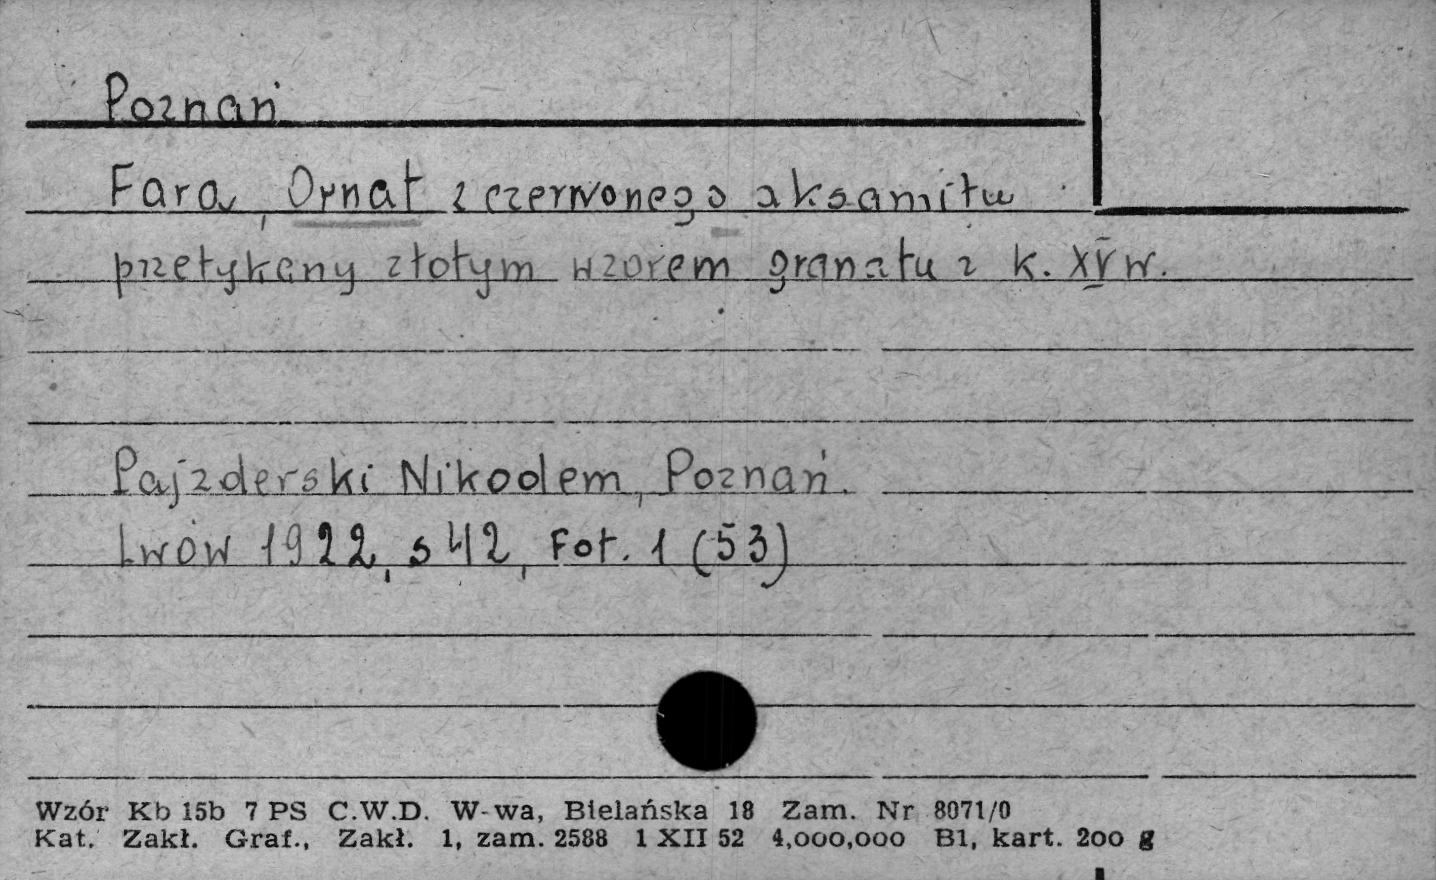 Poznań
Fara, Ornat z czerwonego aksamitu
przetykany złotym wzorem granatu z k. XV w.
Pajzderski Nikodem, Poznań.
Lwów 1922, s 42, Fot. 1 (53)
Wzór Kb 15b 7 PS C.W.D. W-wa, Bielańska 18 Zam. Nr 8071/0
Kat. Zakł. Graf., Zakł. 1, zam. 2588 1 XII 52 4,000,000 B1, kart. 200 g